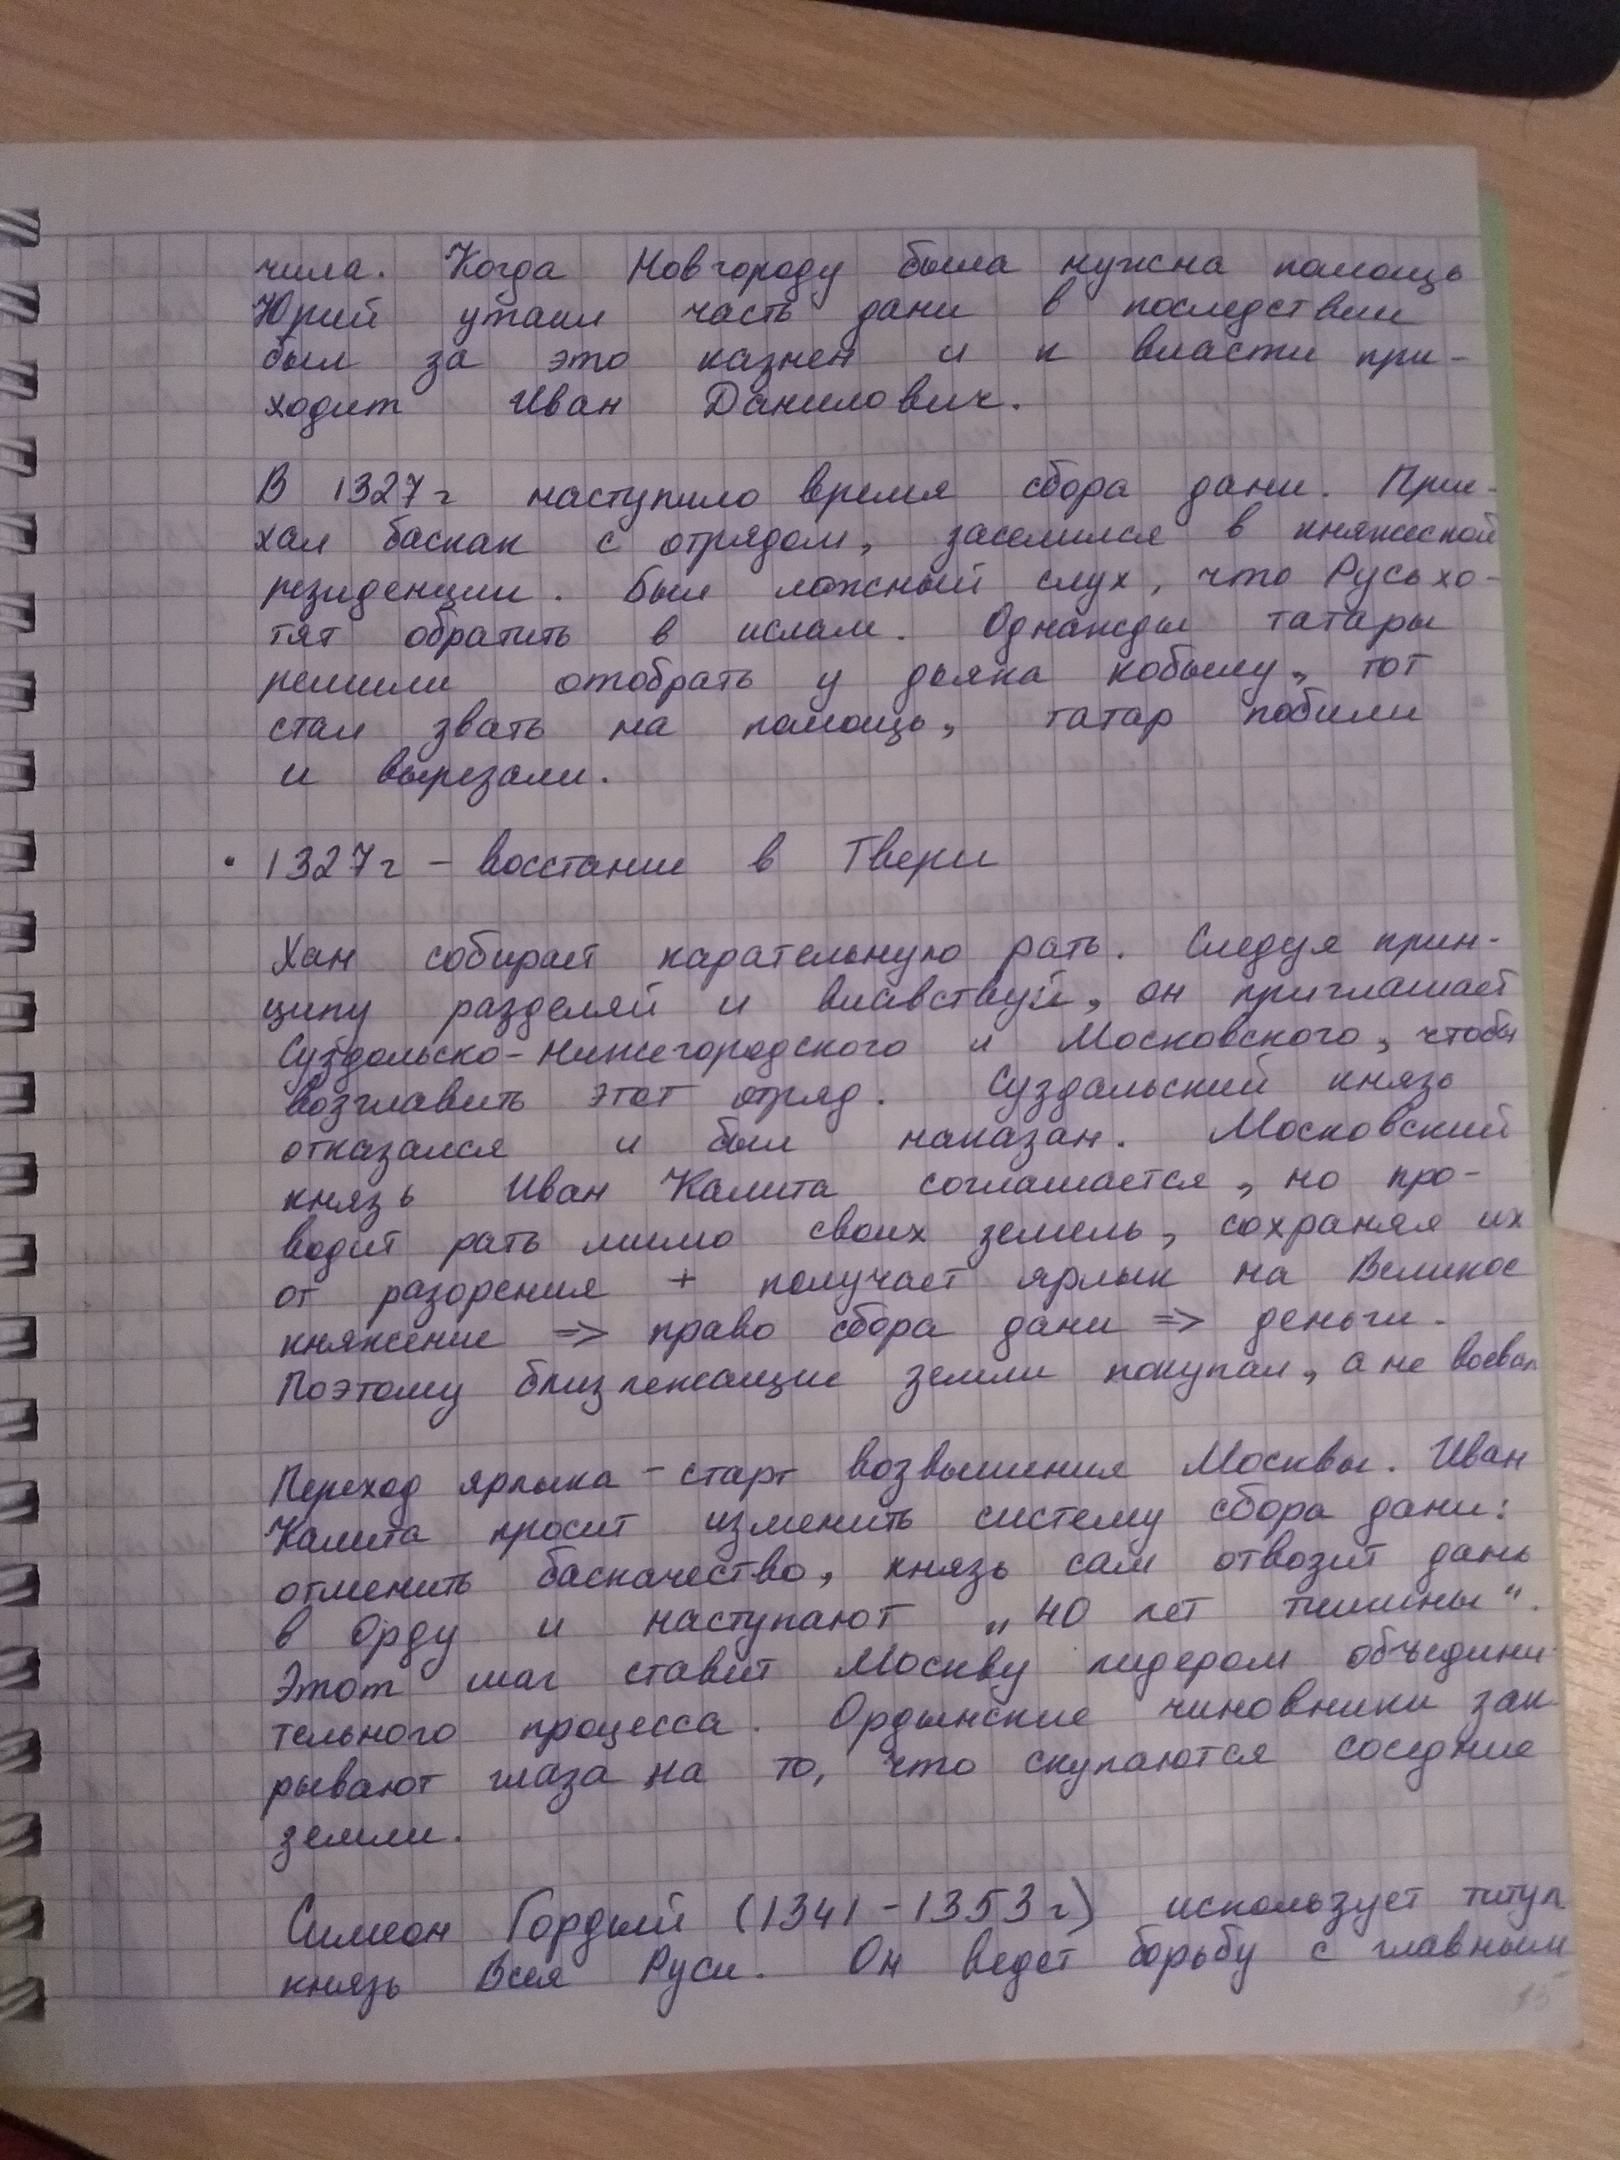 чила. Когда Новгороду была нужна помощь
Юрий утаил часть дани в последствии
был за это казнен и к власти при-
ходит Иван Данилович.
В 1327г наступило время сбора дани. Прие-
хал баскак с отрядом, заселился в княжеской
резиденции. Был ложный слух, что Русь хо-
тят обратить в ислам. Однажды татары
решили отобрать у дьяка кобылу, тот
стал звать на помощь, татар побили
и вырезали.
• 1327г - восстание в Твери
Хан собирает карательную рать. Следуя прин-
ципу разделяй и влавствуй, он приглашает
Суздольско-Нижегородского и Московского, чтобы
возглавить этот отряд. Суздальский князь
отказался и был наказан. Московский
князь Иван Калита соглашается, но про-
водит рать мимо своих земель, сохраняя их
от разорения + получает ярлык на Великое
княжение => право сбора дани => деньги.
Поэтому близлежащие земли покупал, а не воевал
Переход ярлыка - старт возвышения Москвы. Иван
Калита просит изменить систему сбора дани:
отменить баскачество, князь сам отвозит дань
в Орду и наступают „40 лет тишины".
Этот шаг ставит Москву лидером объедини-
тельного процесса. Ордынские чиновники зак-
рывают глаза на то, что скупаются соседние
земли.
Симеон Гордый (1341-1353г) использует титул
князь Всея Руси. Он ведет борьбу с главным
15